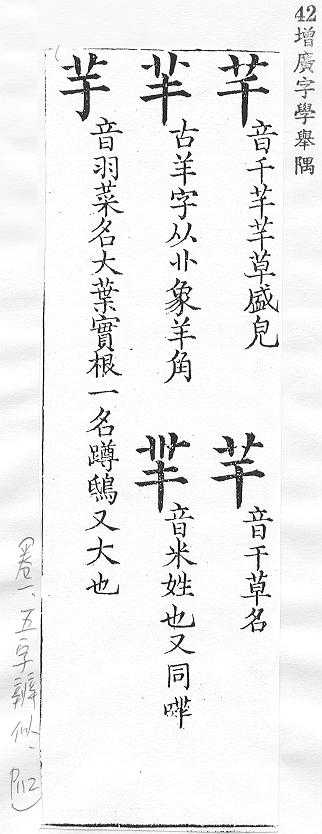 42增廣字學舉隅
芊 音千芊芊草盛皃
芉 音干草名
𦍌 古羊字从𦫳象羊角
羋 音米姓也又同
芋 音羽菜名大葉實根一名蹲鴟又大也
卷一、五字辨似、P112